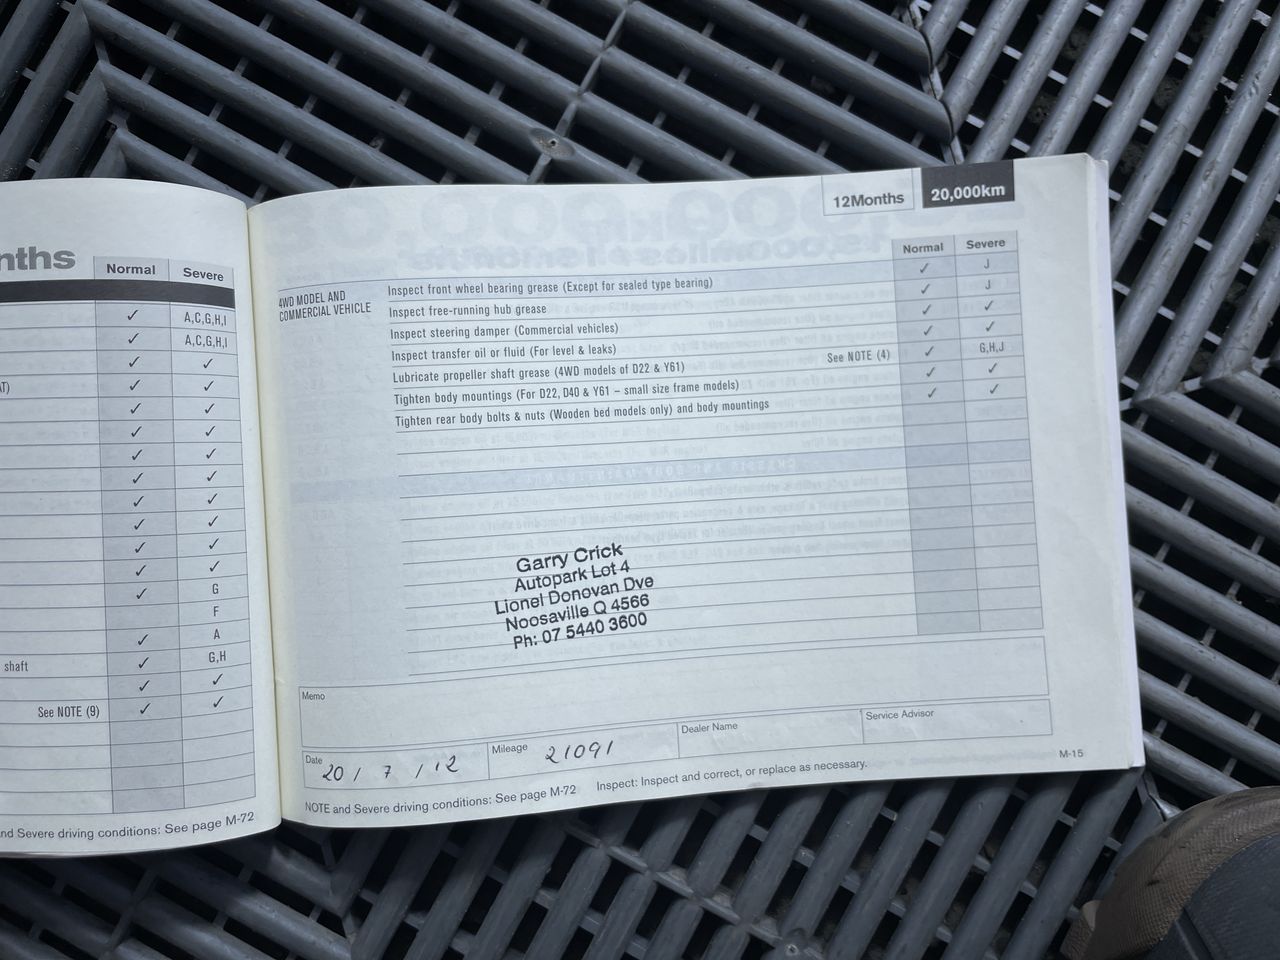 nths
Normal Severe
✓ A,C,G,H,I
✓ A,C,G,H,I
✓ ✓
AT) ✓ ✓
✓ ✓
✓ ✓
✓ ✓
✓ ✓
✓ ✓
✓ ✓
✓ ✓
✓ ✓
✓ G
F
✓ A
shaft ✓ G,H
✓ ✓
See NOTE (9) ✓ ✓
nd Severe driving conditions: See page M-72
12Months 20,000km
Normal Severe
4WD MODEL AND
COMMERCIAL VEHICLE
Inspect front wheel bearing grease (Except for sealed type bearing) ✓ J
Inspect free-running hub grease ✓ J
Inspect steering damper (Commercial vehicles) ✓ ✓
Inspect transfer oil or fluid (For level & leaks) ✓ ✓
Lubricate propeller shaft grease (4WD models of D22 & Y61) See NOTE (4) ✓ G,H,J
Tighten body mountings (For D22, D40 & Y61 – small size frame models) ✓ ✓
Tighten rear body bolts & nuts (Wooden bed models only) and body mountings ✓ ✓
Garry Crick
Autopark Lot 4
Lionel Donovan Dve
Noosaville Q 4566
Ph: 07 5440 3600
Memo
Date 20 / 7 / 12 Mileage 21091 Dealer Name Service Advisor
NOTE and Severe driving conditions: See page M-72 Inspect: Inspect and correct, or replace as necessary. M-15